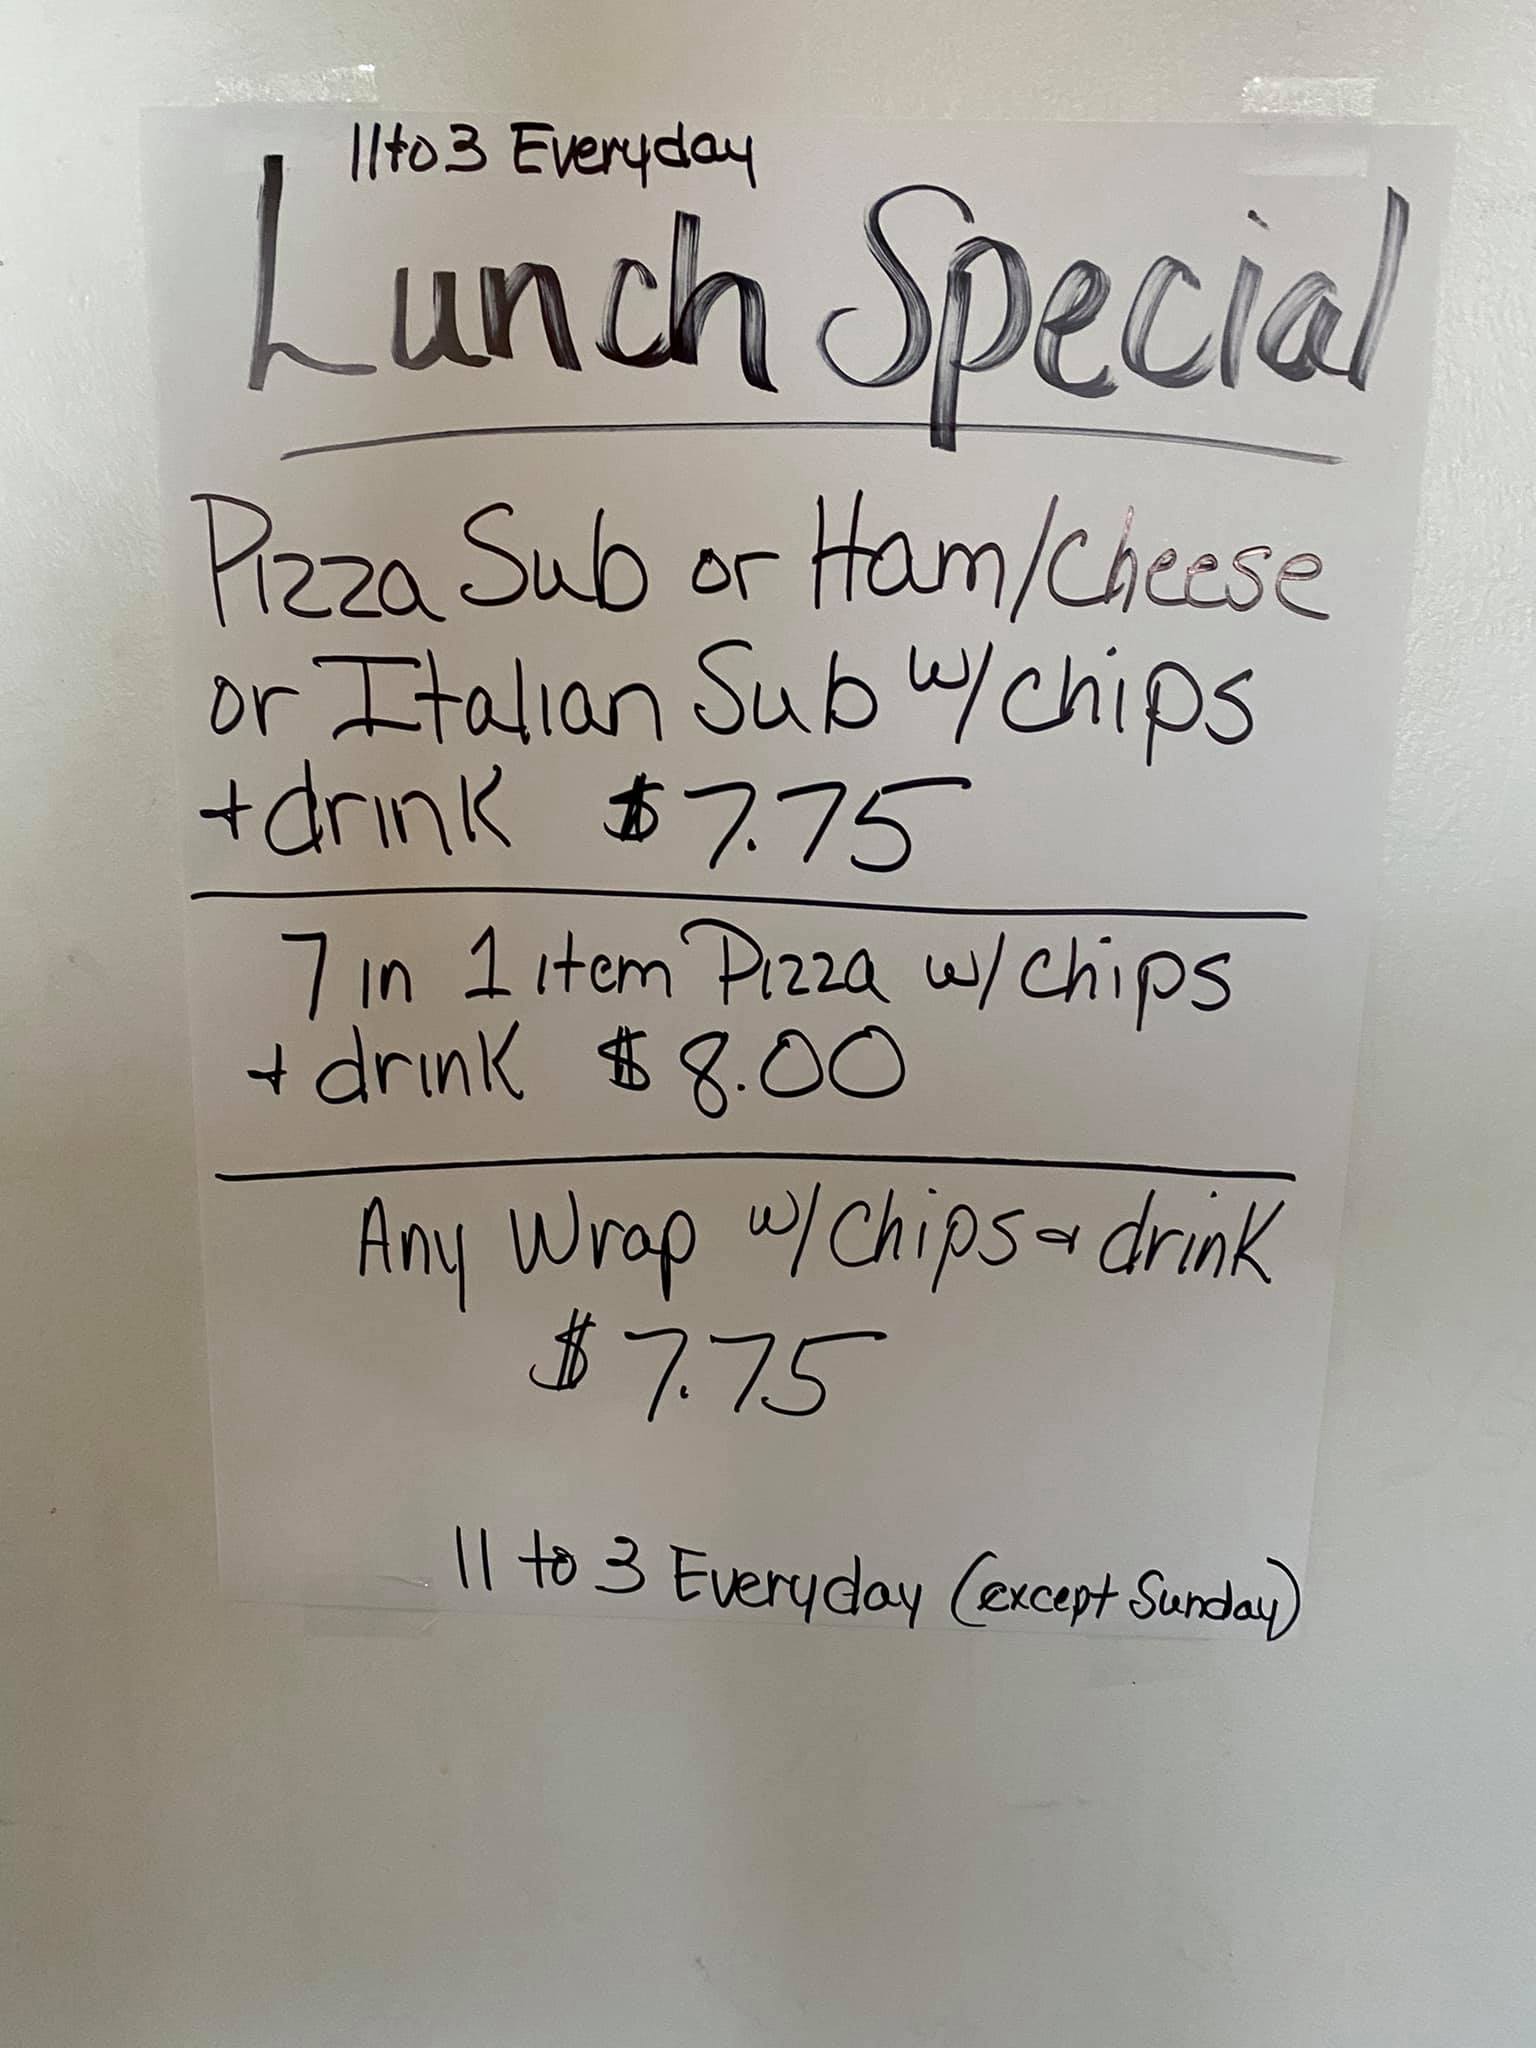 11 to 3 Everyday
Lunch Special
Pizza Sub or Ham/Cheese
or Italian Sub w/ chips
+ drink $7.75
7 in 1 item Pizza w/ chips
+ drink $8.00
Any Wrap w/ chips + drink
$7.75
11 to 3 Everyday (except Sunday)